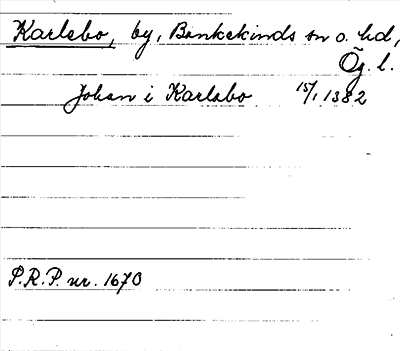 Karlsbo, by, Bankekinds sn o. hd,
Ög. l.
Johan i Karlsbo 15/1 1382
P.R.P. nr. 1670